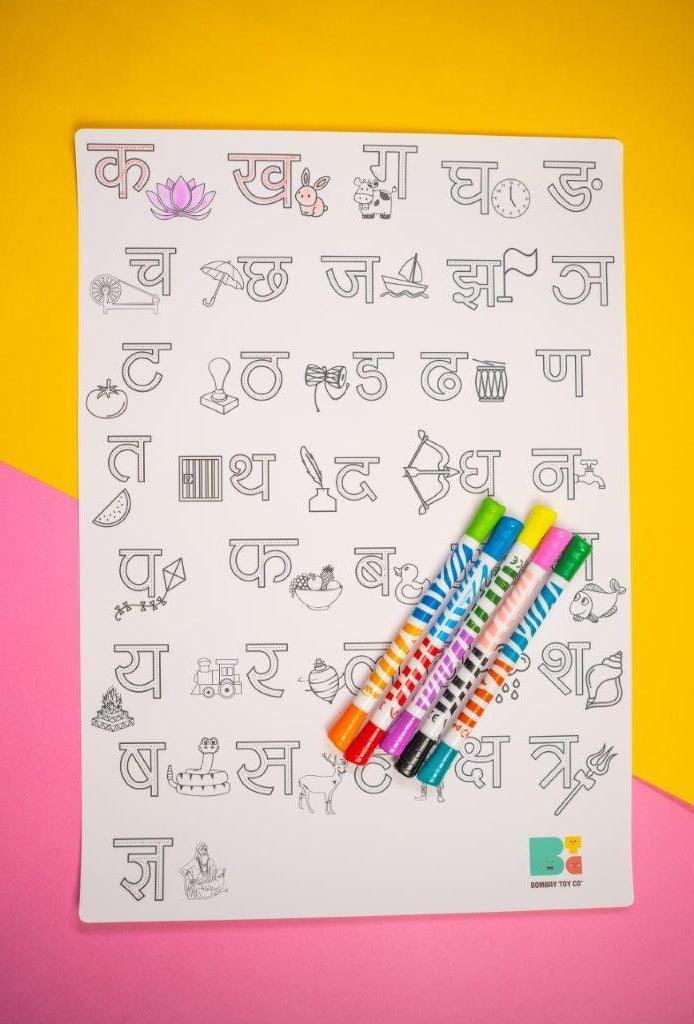 क ख ग घ ङ
च छ ज झ ञ
ट ठ ड ढ ण
त थ द ध न
प फ ब
य र श
ष स क्ष त्र
ज्ञ
BTC
BOMBAY TOY CO